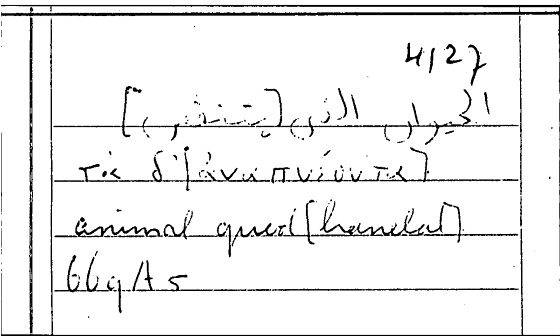 4,27
الحيوان الذى [يتنفس]
τὰ δ' [ἀναπνέοντα]
animal quod [hanelat]
669A5